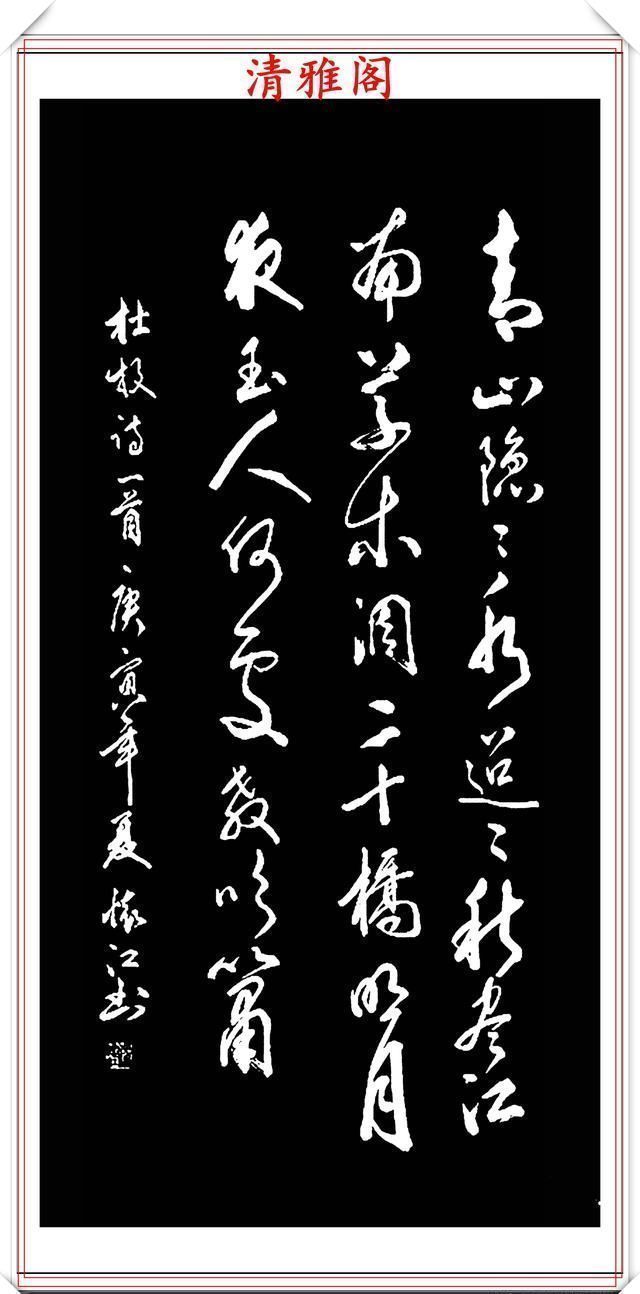 清雅阁
青山隐〻水迢〻秋尽江
南草未凋二十橋明月
夜玉人何处教吹箫
杜牧诗一首庚寅年夏懷江书